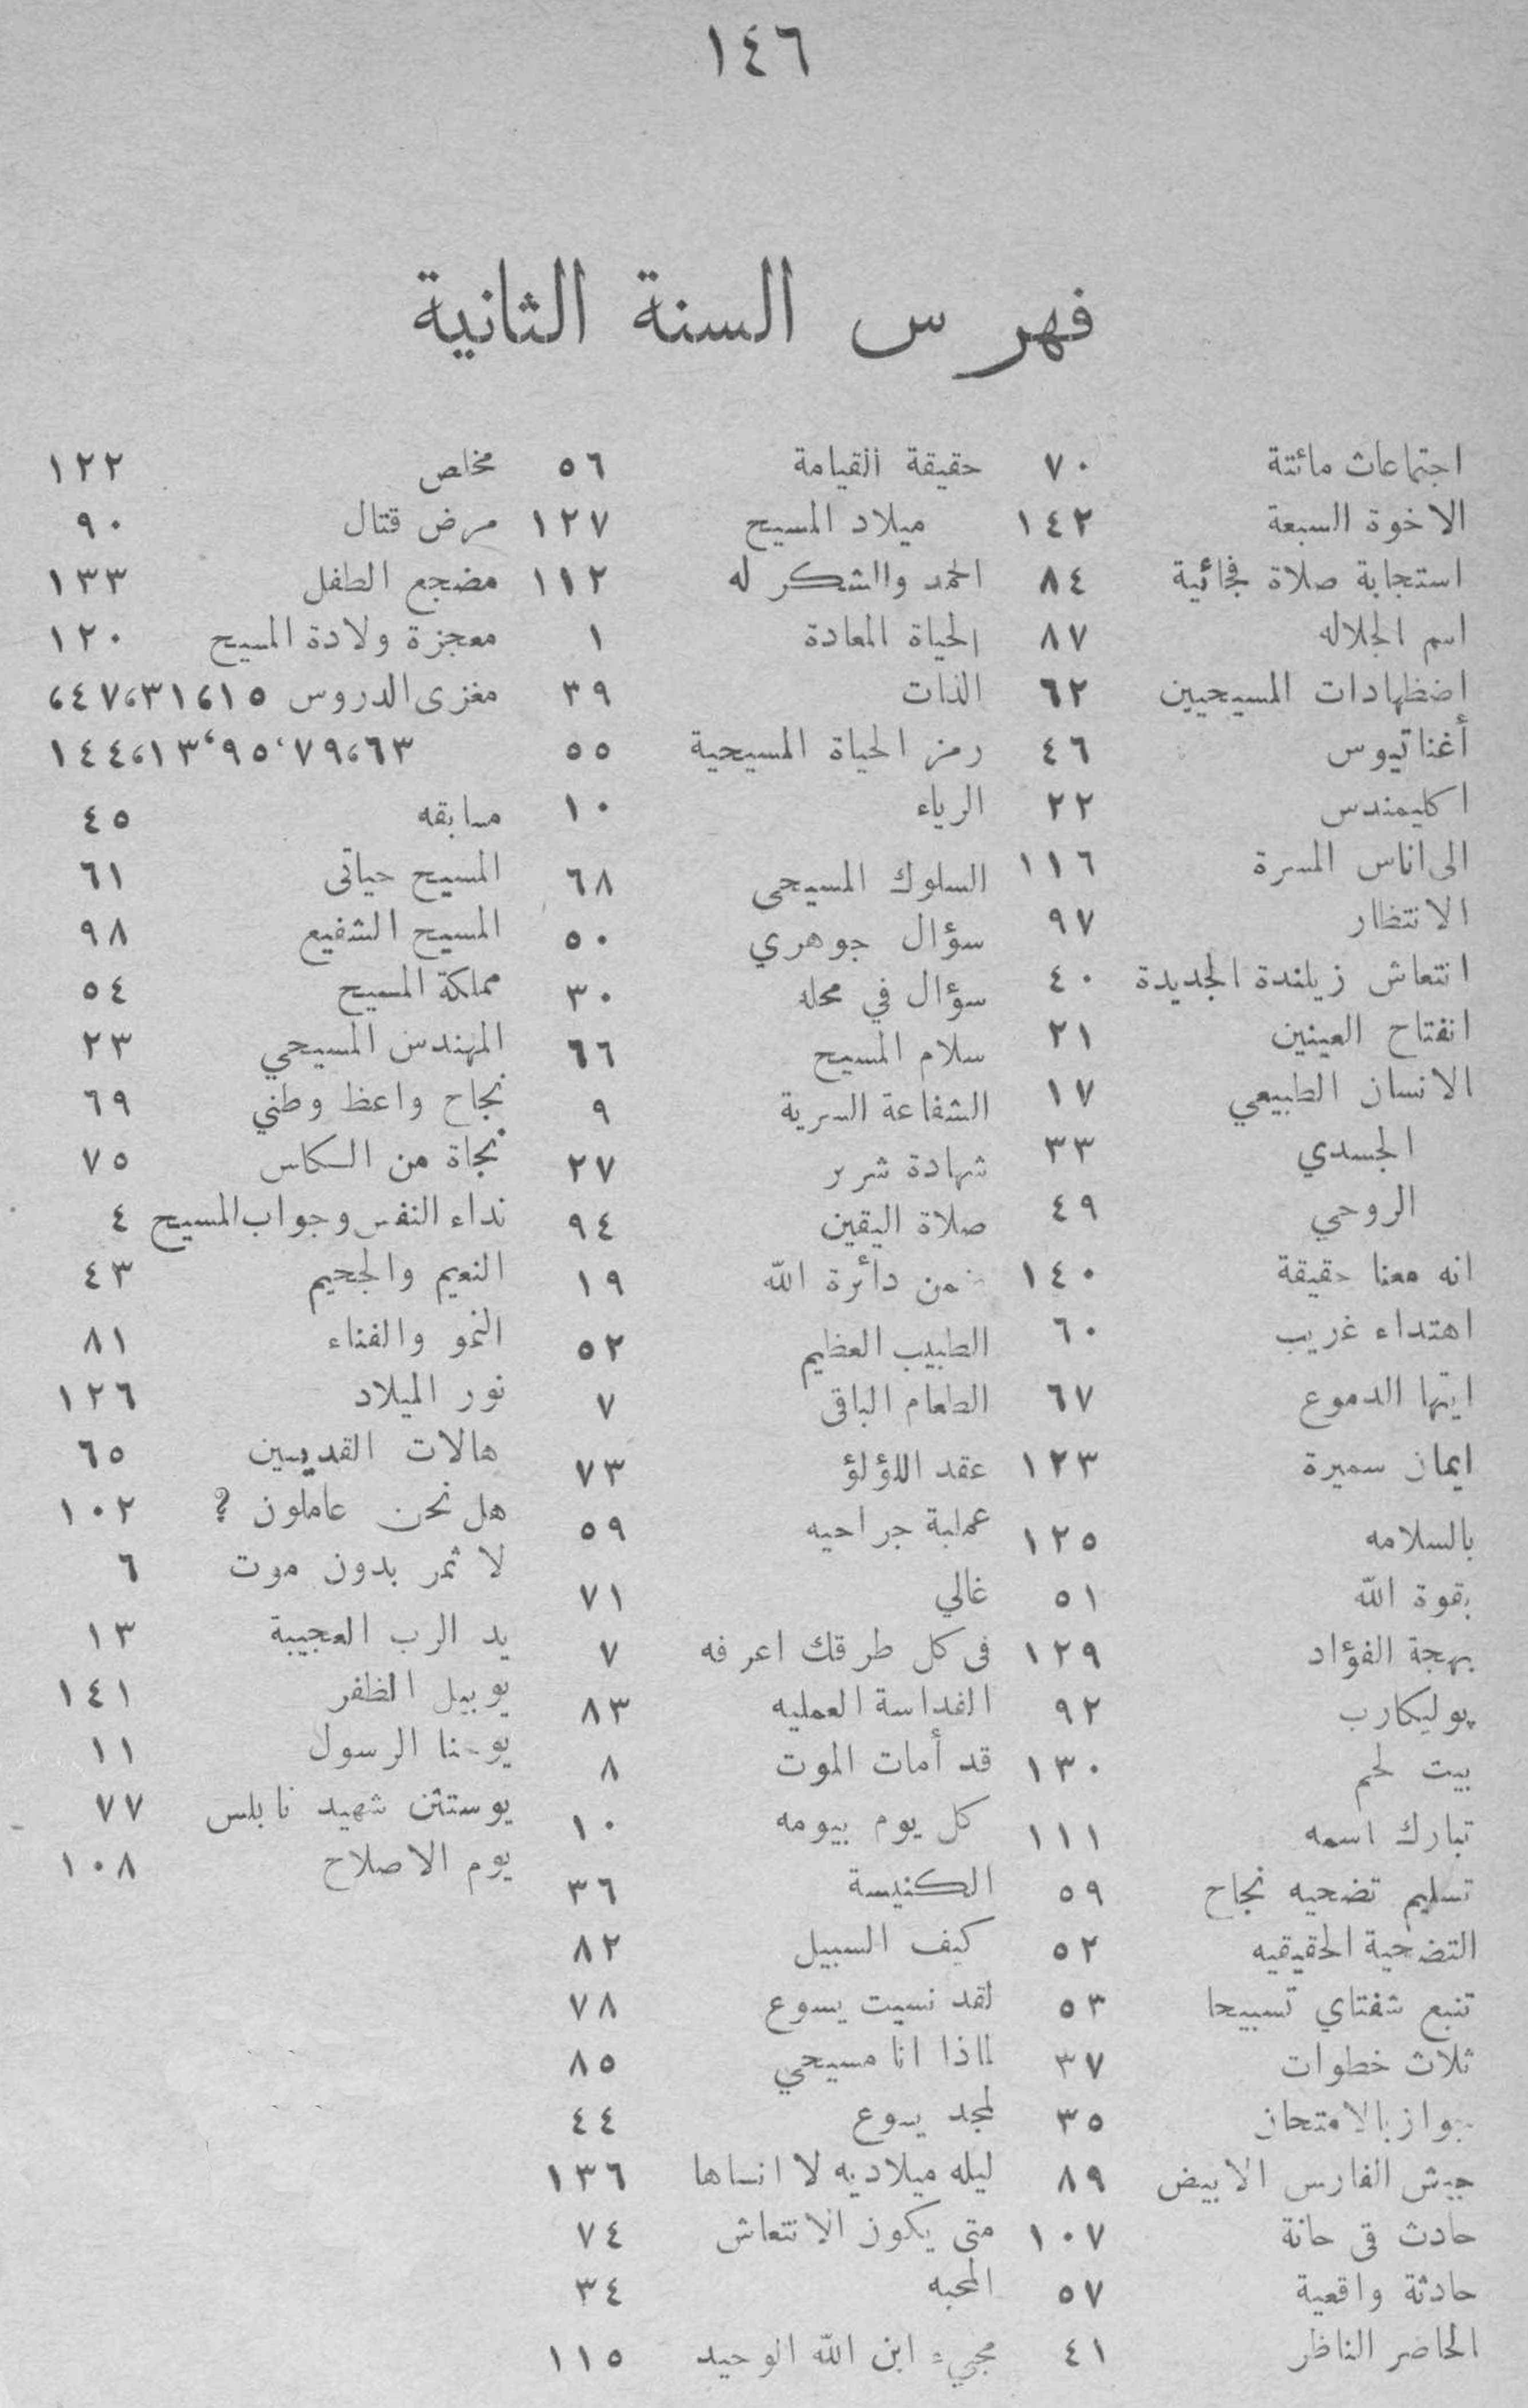 ١٤٦
فهرس السنة الثانية
اجتماعات مائتة ٧٠
الاخوة السبعة ١٤٢
استجابة صلاة فجائية ٨٤
اسم الجلاله ٨٧
اضظهادات المسيحيين ٦٢
أغناتيوس ٤٦
اكليمندس ٢٢
الى اناس المسرة ١١٦
الانتظار ٩٧
انتعاش زيلندة الجديدة ٤٠
انفتاح العينين ٢١
الانسان الطبيعي ١٧
الجسدي ٣٣
الروحي ٤٩
انه معنا حقيقة ١٤٠
اهتداء غريب ٦٠
ايتها الدموع ٦٧
ايمان سميرة ١٢٣
بالسلامه ١٢٥
بقوة الله ٥١
بهجة الفؤاد ١٢٩
بوليكارب ٩٢
بيت لحم ١٣٠
تبارك اسمه ١١١
تسليم تضحيه نجاح ٥٩
التضحية الحقيقيه ٥٢
تنبع شفتاي تسبيحا ٥٣
ثلاث خطوات ٣٧
جواز بالامتحان ٣٥
جيش الفارس الابيض ٨٩
حادث في حانة ١٠٧
حادثة واقعية ٥٧
الحاضر الناظر ٤١
حقيقة القيامة ٥٦
ميلاد المسيح ١٢٧
الحمد والشكر له ١١٢
الحياة المعادة ١
الذات ٣٩
رمز الحياة المسيحية ٥٥
الرياء ١٠
السلوك المسيحى ٦٨
سؤال جوهري ٥٠
سؤال في محله ٣٠
سلام المسيح ٦٦
الشفاعة السرية ٩
شهادة شرير ٢٧
صلاة اليقين ٩٤
ضمن دائرة الله ١٩
الطبيب العظيم ٥٢
الطعام الباقى ٧
عقد اللؤلؤ ٧٣
عملية جراحيه ٥٩
غالي ٧١
فى كل طرقك اعرفه ٧
القداسة العمليه ٨٣
قد أمات الموت ٨
كل يوم بيومه ١٠
الكنيسة ٣٦
كيف السبيل ٨٢
لقد نسيت يسوع ٧٨
لماذا انا مسيحي ٨٥
لمجد يسوع ٤٤
ليله ميلاديه لا انساها ١٣٦
متى يكون الانتعاش ٧٤
المحبه ٣٤
مجيء ابن الله الوحيد ١١٥
مخلص ١٢٢
مرض قتال ٩٠
مضجع الطفل ١٣٣
معجزة ولادة المسيح ١٢٠
مغزى الدروس ١٥،٣١،٤٧،
٦٣،٧٩،٩٥،١٣،١٤٤
مسابقه ٤٥
المسيح حياتى ٦١
المسيح الشفيع ٩٨
مملكة المسيح ٥٤
المهندس المسيحي ٢٣
نجاح واعظ وطني ٦٩
نجاة من الكاس ٧٥
نداء النفس وجواب المسيح ٤
النعيم والجحيم ٤٣
النمو والفناء ٨١
نور الميلاد ١٢٦
هالات القديسين ٦٥
هل نحن عاملون ؟ ١٠٢
لا ثمر بدون موت ٦
يد الرب العجيبة ١٣
يوبيل الظفر ١٤١
يوحنا الرسول ١١
يوستثن شهيد نابلس ٧٧
يوم الاصلاح ١٠٨